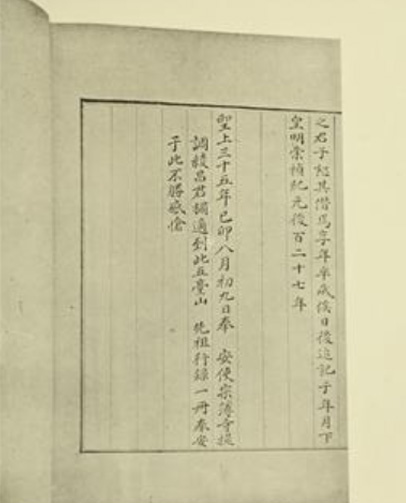 之君子恕其僭焉享年卒歲俟日後追記于年月下
皇明崇禎紀元後百二十七年
聖上三十五年己卯八月初九日奉 安使宗簿寺提
調稜昌君橚適到此五臺山 先祖行錄一冊奉安
于此不勝感愴